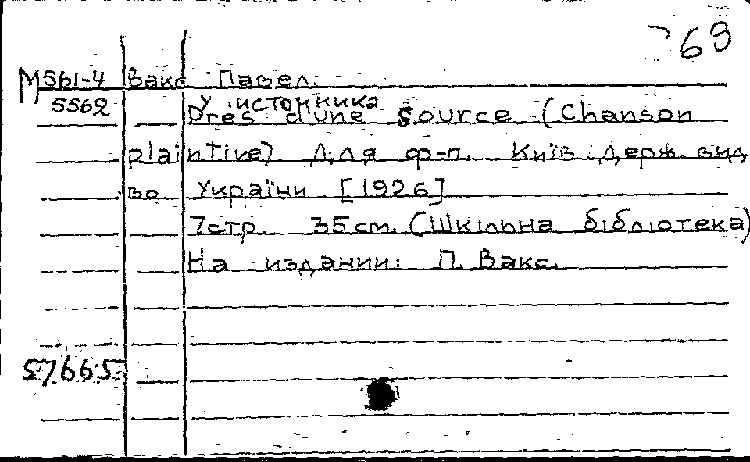 69
М561-4 Вакс Павел.
5562 у источника
Près d'une source (Chanson
plaintive) Для ф-п. Київ. Держ. вид
во України [1926]
7стр. 35 cm. (Шкільна бібліотека)
На издании: П. Вакс.
57665